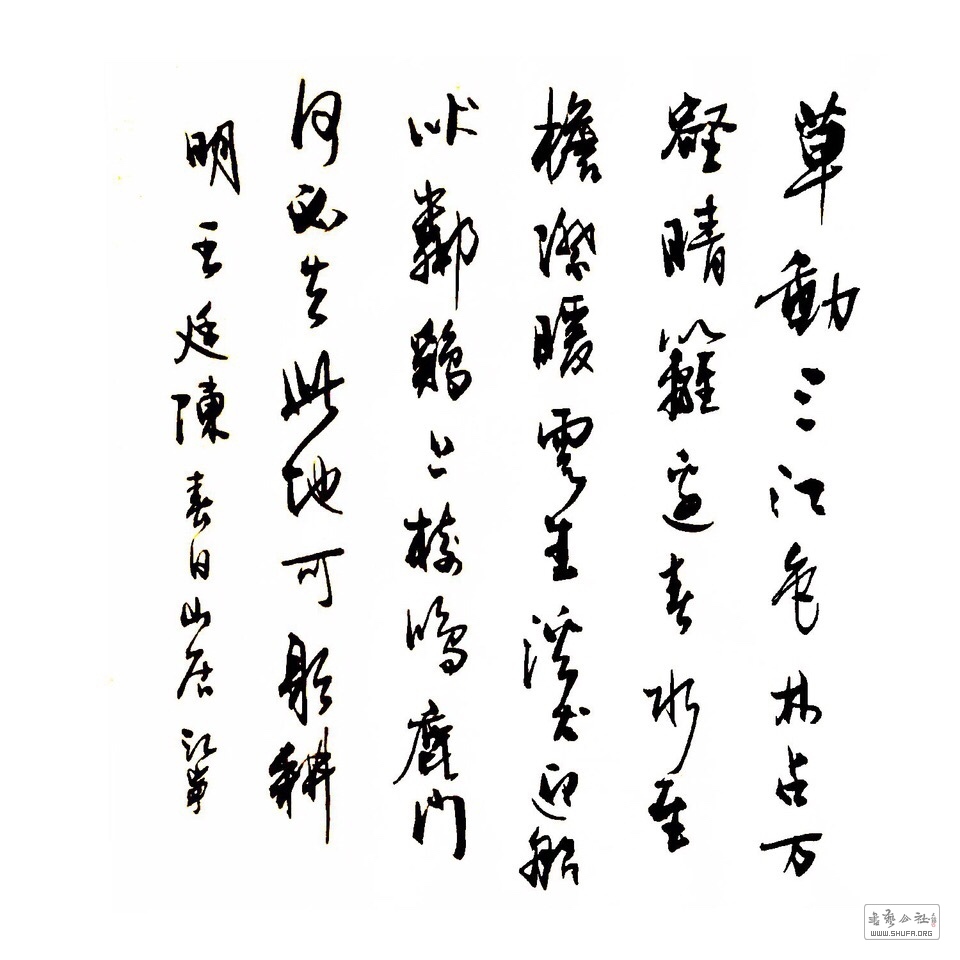 草動三江色林占万
壑晴籬邊春水至
檐際暖雲生溪犬迎船
吠鄰鷄上樹鳴鹿門
何必去此地可躬耕
明王廷陳春日山居
書藝公社
WWW.SHUFA.ORG